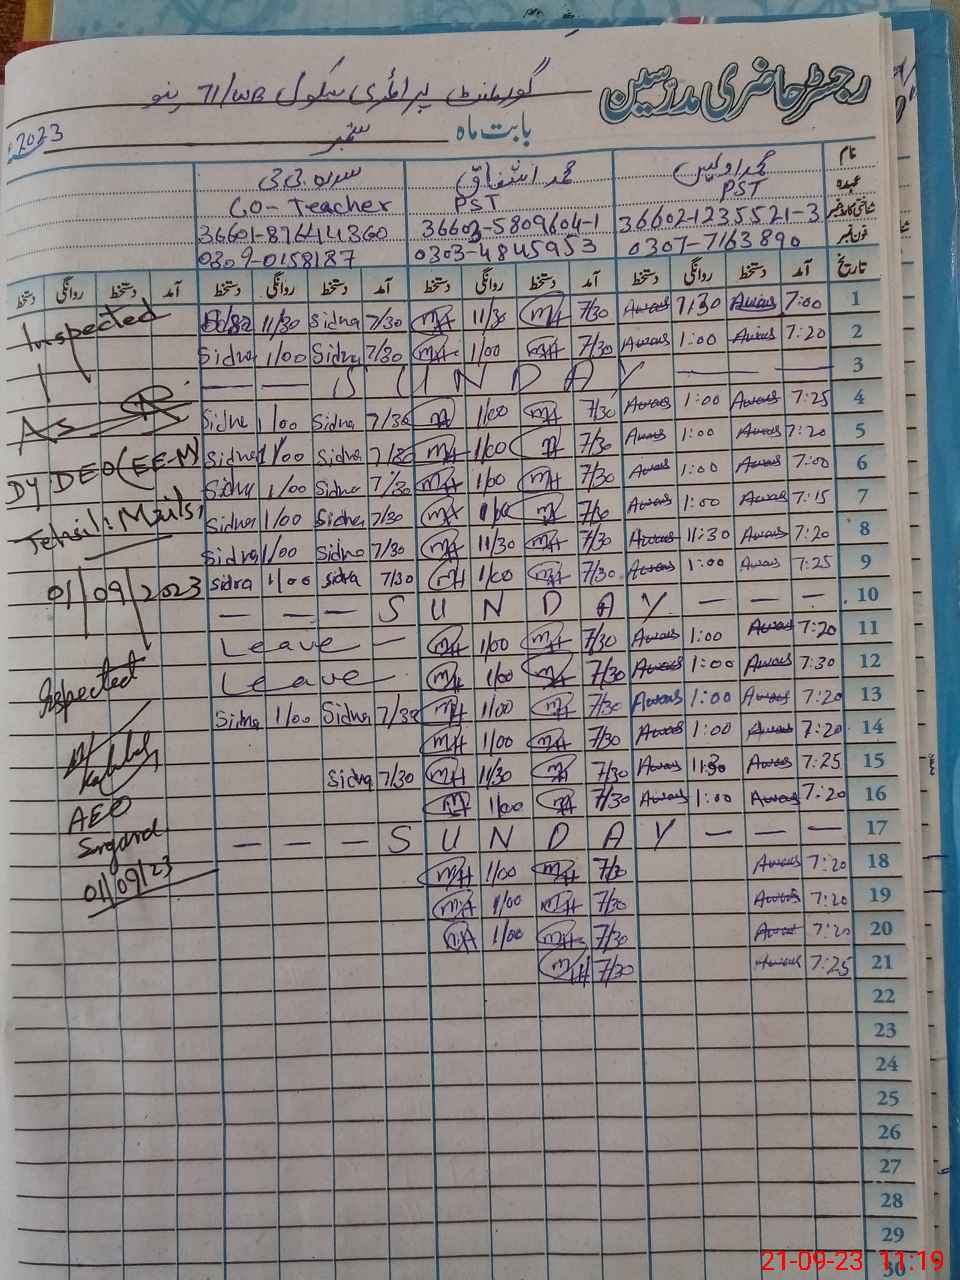 رجسٹر حاضری مدرسین
گورنمنٹ پرائمری سکول 71/WB
بابت ماہ ستمبر 2023
نام محمد اویس محمد اشفاق سدرہ بی بی
عہدہ PST PST CO-Teacher
شناختی کارڈ نمبر 36602-1235521-3 36603-5809604-1
فون نمبر 0307-7163890 0303-4845953 0309-0158187
تاریخ آمد دستخط روانگی دستخط آمد دستخط روانگی دستخط آمد دستخط روانگی دستخط آمد دستخط روانگی دستخط
1 7:00 Awais 7/30 MA 11/30 MA 7/30 Sidra 11/30
2 7:20 Awais 1:00 Awais 7/30 MA 1/00 MA 7/30 Sidra 1/00 Sidra
3 — — S U N D A Y — —
4 7:25 Awais 1:00 Awais 7/30 MA 1/00 MA 7/30 Sidra 1/00 Sidra
5 7:20 Awais 1:00 Awais 7/30 MA 1/00 MA 7/30 Sidra 1/00 Sidra
6 7:00 Awais 1:00 Awais 7/30 MA 1/00 MA 7/30 Sidra 1/00 Sidra
7 7:15 Awais 1:00 Awais 7/30 MA 1/00 MA 7/30 Sidra 1/00 Sidra
8 7:20 Awais 11:30 Awais 7/30 MA 11/30 MA 7/30 Sidra 1/00 Sidra
9 7:25 Awais 1:00 Awais 7/30 MA 1/00 MA 7/30 Sidra 1/00 Sidra
10 — — — S U N D A Y — — —
11 7:20 Awais 1:00 Awais 7/30 MA 1/00 MA Leave
12 7:30 Awais 1:00 Awais 7/30 MA 1/00 MA Leave
13 7:20 Awais 1:00 Awais 7/30 MA 1/00 MA 7/30 Sidra 1/00 Sidra
14 7:20 Awais 1:00 Awais 7/30 MA 1/00 MA
15 7:25 Awais 11:30 Awais 7/30 MA 11/30 MA 7/30 Sidra
16 7:20 Awais 1:00 Awais 7/30 MA 1/00 MA
17 — — — S U N D A Y — — —
18 7:20 Awais 7/30 MA 1/00 MA
19 7:20 Awais 7/30 MA 1/00 MA
20 7:20 Awais 7/30 MA 1/00 MA
21 7:25 Awais 7/30 MA
22
23
24
25
26
27
28
29
30
Inspected
DY DEO (EE-M)
Tehsil: Mailsi
01/09/2023
Inspected
AEO
01/09/23
21-09-23 11:19